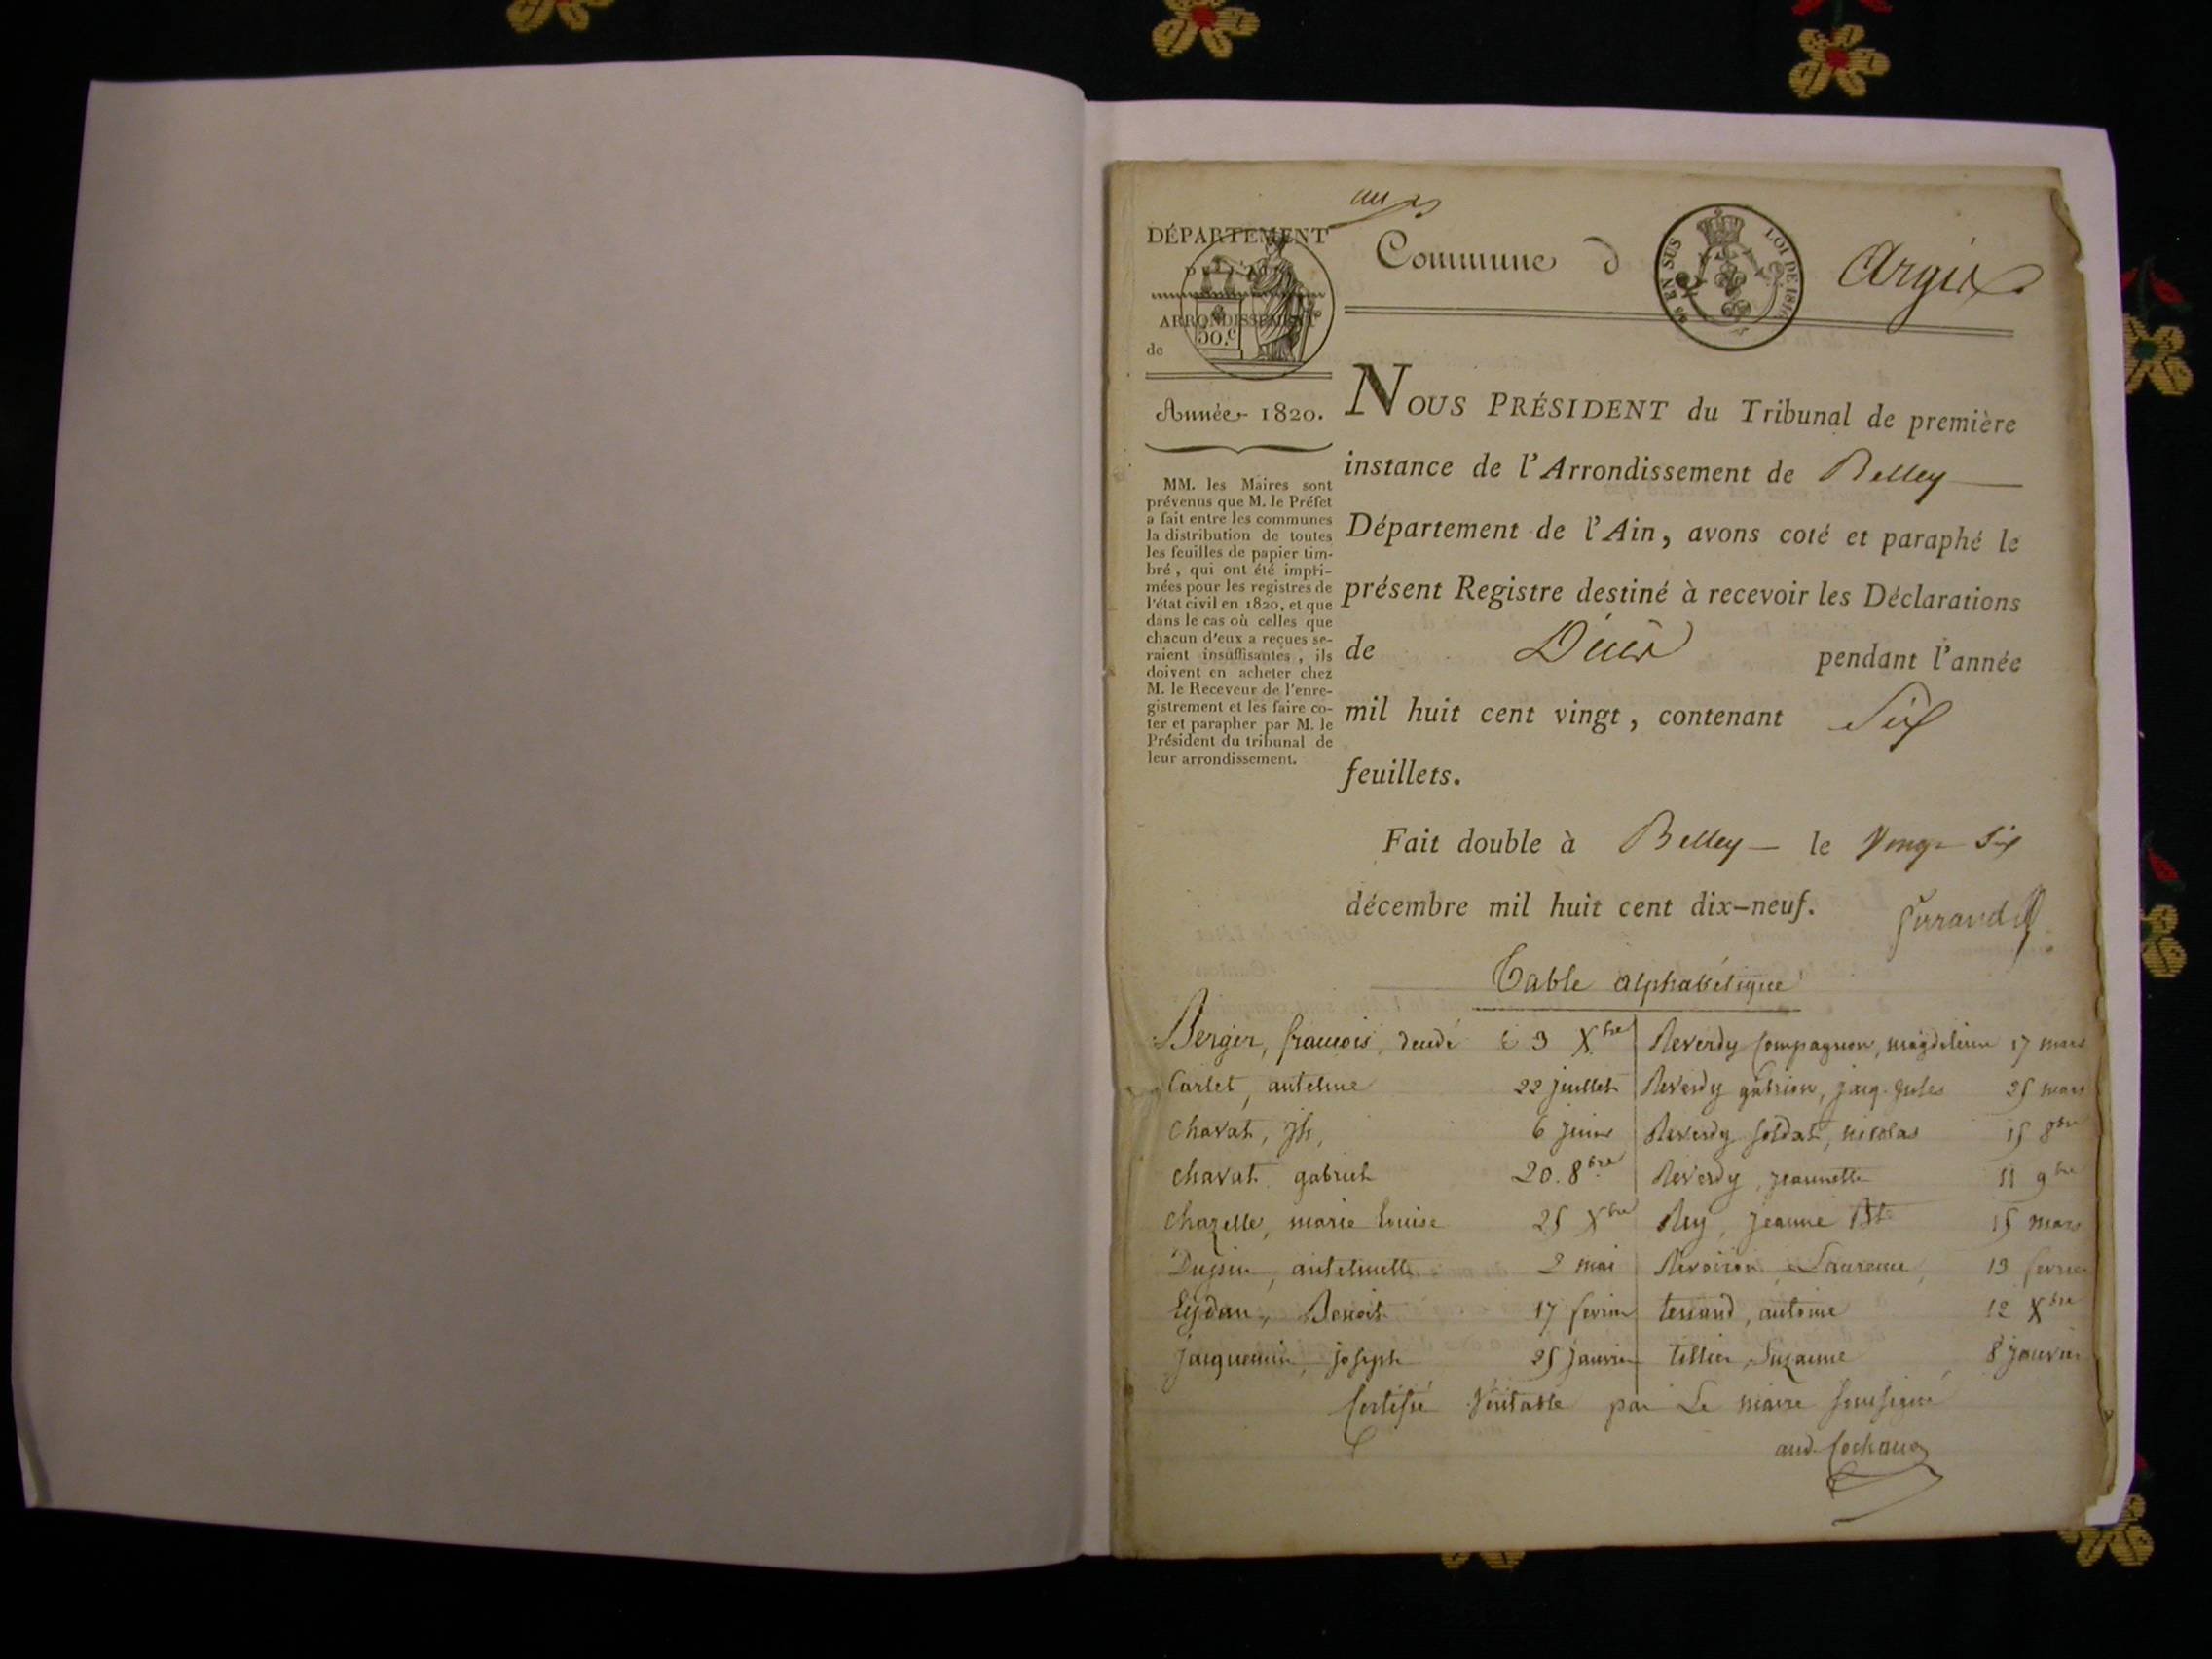 DÉPARTEMENT
DE L'AIN
ARRONDISSEMENT
50.c
de
Commune d' Argis
EN SUS LOI DE 1816
Année 1820.
MM. les Maires sont
prévenus que M. le Préfet
a fait entre les communes
la distribution de toutes
les feuilles de papier tim-
bré, qui ont été impri-
mées pour les registres de
l'état civil en 1820, et que
dans le cas où celles que
chacun d'eux a reçues se-
raient insuffisantes, ils
doivent en acheter chez
M. le Receveur de l'enre-
gistrement et les faire co-
ter et parapher par M. le
Président du tribunal de
leur arrondissement.
NOUS PRÉSIDENT du Tribunal de première
instance de l'Arrondissement de Belley
Département de l'Ain, avons coté et paraphé le
présent Registre destiné à recevoir les Déclarations
de Décès pendant l'année
mil huit cent vingt, contenant Six
feuillets.
Fait double à Belley le Vingt Six
décembre mil huit cent dix-neuf.
Table alphabétique
Berger, françois, décédé le 9 Xbre
Carlet, antelme 22 juillet
Chavat, jh, 6 juin
Chavat gabriel 20. 8bre
Chazelle, marie louise 25 Xbre
antelmette 2 mai
Eydan, Benoit 17 fevrier
Jacquemin, joseph 25 Janvier
Reverdy Compagnon, magdeleine 17 mars
Reverdy gabrion, jacq. 25 mars
Reverdy soldat, nicolas 15 8bre
Reverdy, jeannette 11 9bre
Rey, jeanne Bte 15 mars
Revoiron, Laurence, 13 fevrier
antoine 12 Xbre
tillier, Suzanne 8 janvier
Certifié Véritable par Le maire soussigné